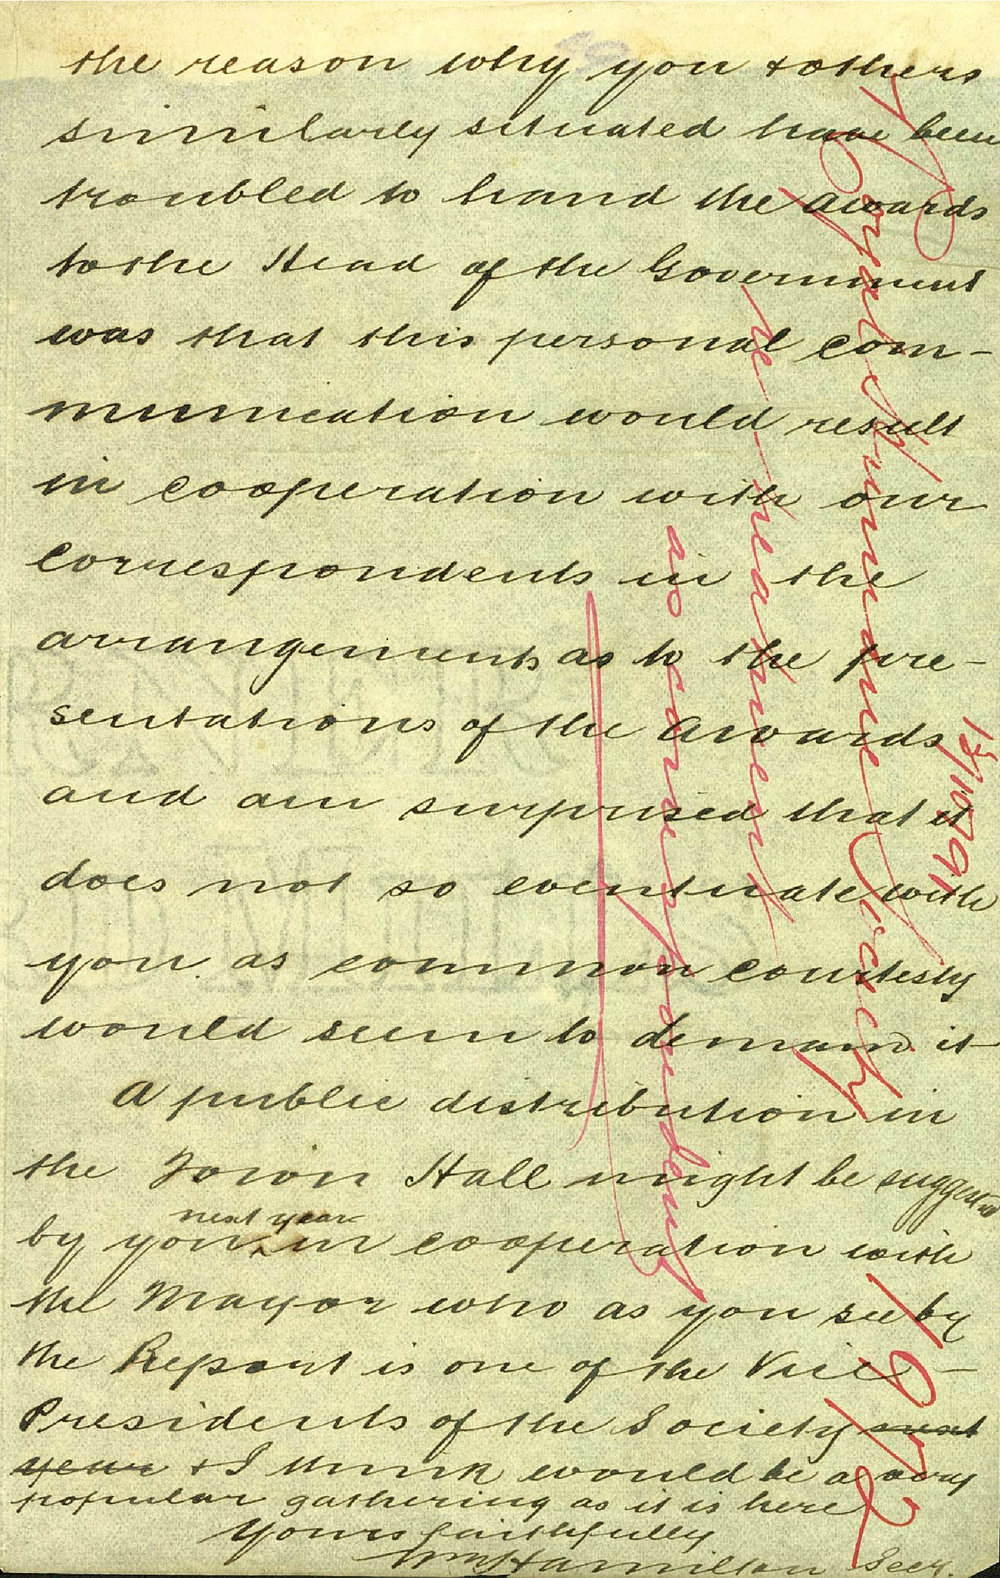 the reason why you & others
similarly situated have been
troubled to hand the awards
to the Head of the Government
was that this personal com-
munication would result
in cooperation with our
correspondents in the
arrangements as to the pre-
sentations of the awards
and am surprised that it
does not so eventuate with
you as common courtesy
would seem to demand it
A public distribution in
the Town Hall might be suggested
next year
by you in cooperation with
the Mayor who as you see by
the Report is one of the Vice-
Presidents of the Society next
year & I think would be a very
popular gathering as it is here
Yours faithfully
Wm Hamilton Secy.
Royal Humane Society
re treatment
as correspondent
13/10/91
1972